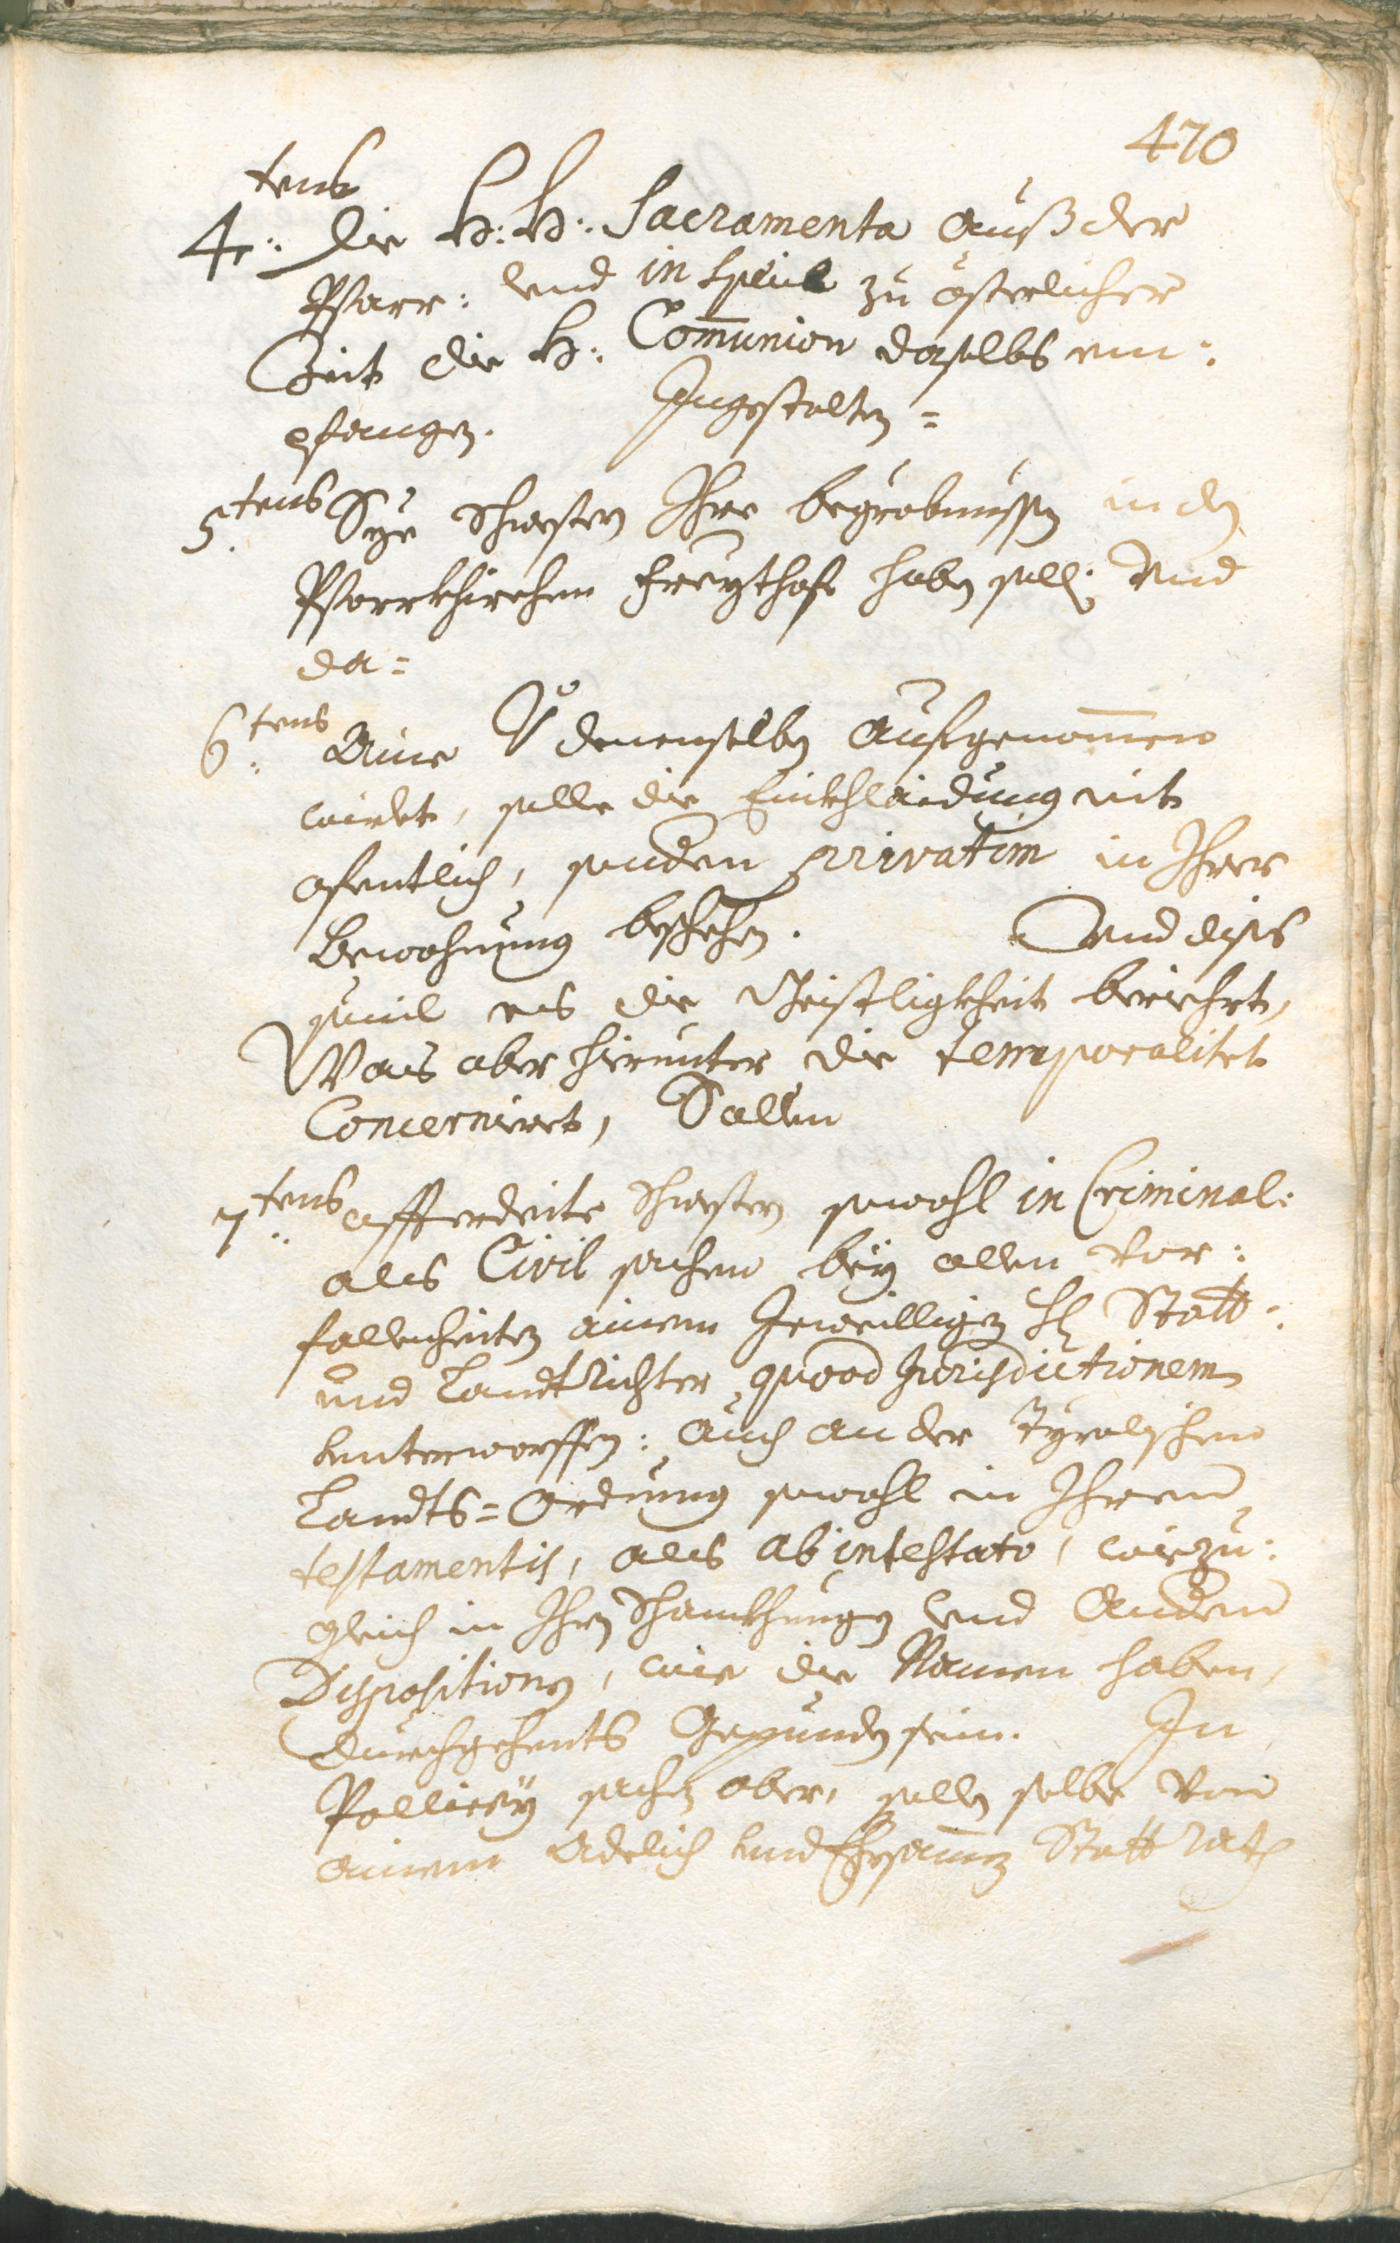 470
4.tens Die H: H: Sacramenta auß der
Pfarr: vnd in spe̅c̅ie zu österlicher
Zeit die H: Com̅union daselbs em:
pfangen. Ingestalten =
5.tens Sye Schwestern Ihre begröbnussen in der
Pfarrkhirchen freythof haben sollen. Vnd
da =
6.tens Aine von denenselben aufgenom̅en
wirdet, solle die Einkhlaidung nit
ofentlich, sondern privatim in Ihrer
Bewohnung beschehen. Vnd dises
souil es die Geistligkheit berierhrt,
Was aber hierunter die temporalitet
Concerniert, Sollen
7.tens offterdeite Schwestern sowohl in Criminal:
als Civil sachen bey allen vor:
fallenheiten ainem Jeweilligen H: Statt:
und Landtrichter quoad Jurisdictionem
vnterworffen: auch an der Tyrolischen
Landts=Ordnung sowohl in Ihren
testamentis, als ab intestato, wie zu:
gleich in Ihren Schankhungen vnd Andern
Dispositionen, wie die Namen haben,
durchgehents Gepunden sein. In
Pollicey sachen aber, sollen selbe von
ainem Adelich vnd Ehrsamen Statt Rath